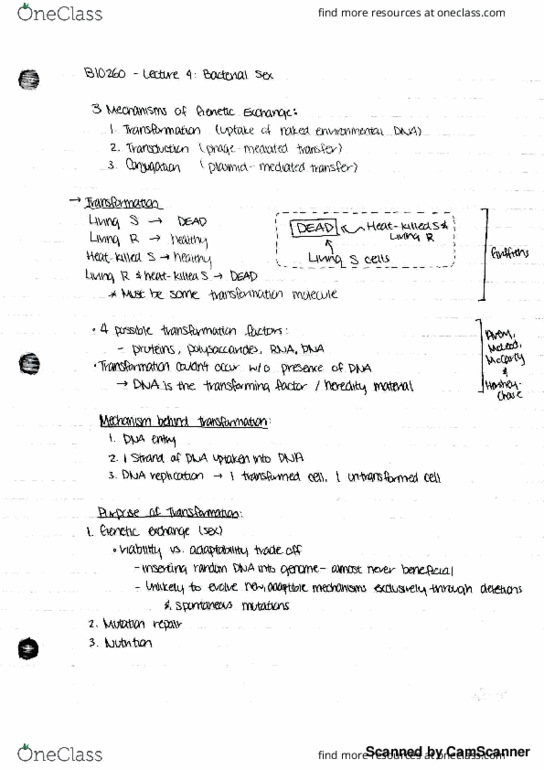 OneClass find more resources at oneclass.com
BIO260 - Lecture 4: Bacterial Sex
3 Mechanisms of Genetic Exchange:
1. Transformation (uptake of naked environmental DNA)
2. Transduction (phage-mediated transfer)
3. Conjugation (plasmid-mediated transfer)
→ Transformation
Living S → DEAD
Living R → healthy
Heat-killed S → healthy
Living R & heat-killed S → DEAD
* Must be some transformation molecule
DEAD ← Heat-killed S &
Living R
Living S cells
Griffiths
• 4 possible transformation factors:
- proteins, polysaccarides, RNA, DNA
• Transformation couldn't occur w/o presence of DNA
→ DNA is the transforming factor / heredity material
Avery,
McLeod,
McCarty
&
Hershey-
Chase
Mechanism behind transformation:
1. DNA entry
2. 1 Strand of DNA uptaken into DNA
3. DNA replication → 1 transformed cell, 1 untransformed cell
Purpose of Transformation:
1. Genetic exchange (sex)
• viability vs. adaptability trade off
- inserting random DNA into genome - almost never beneficial
- Unlikely to evolve new, adaptible mechanisms exclusively through deletions
& spontaneous mutations
2. Mutation repair
3. Nutrition
OneClass find more resources at oneclass.com
Scanned by CamScanner